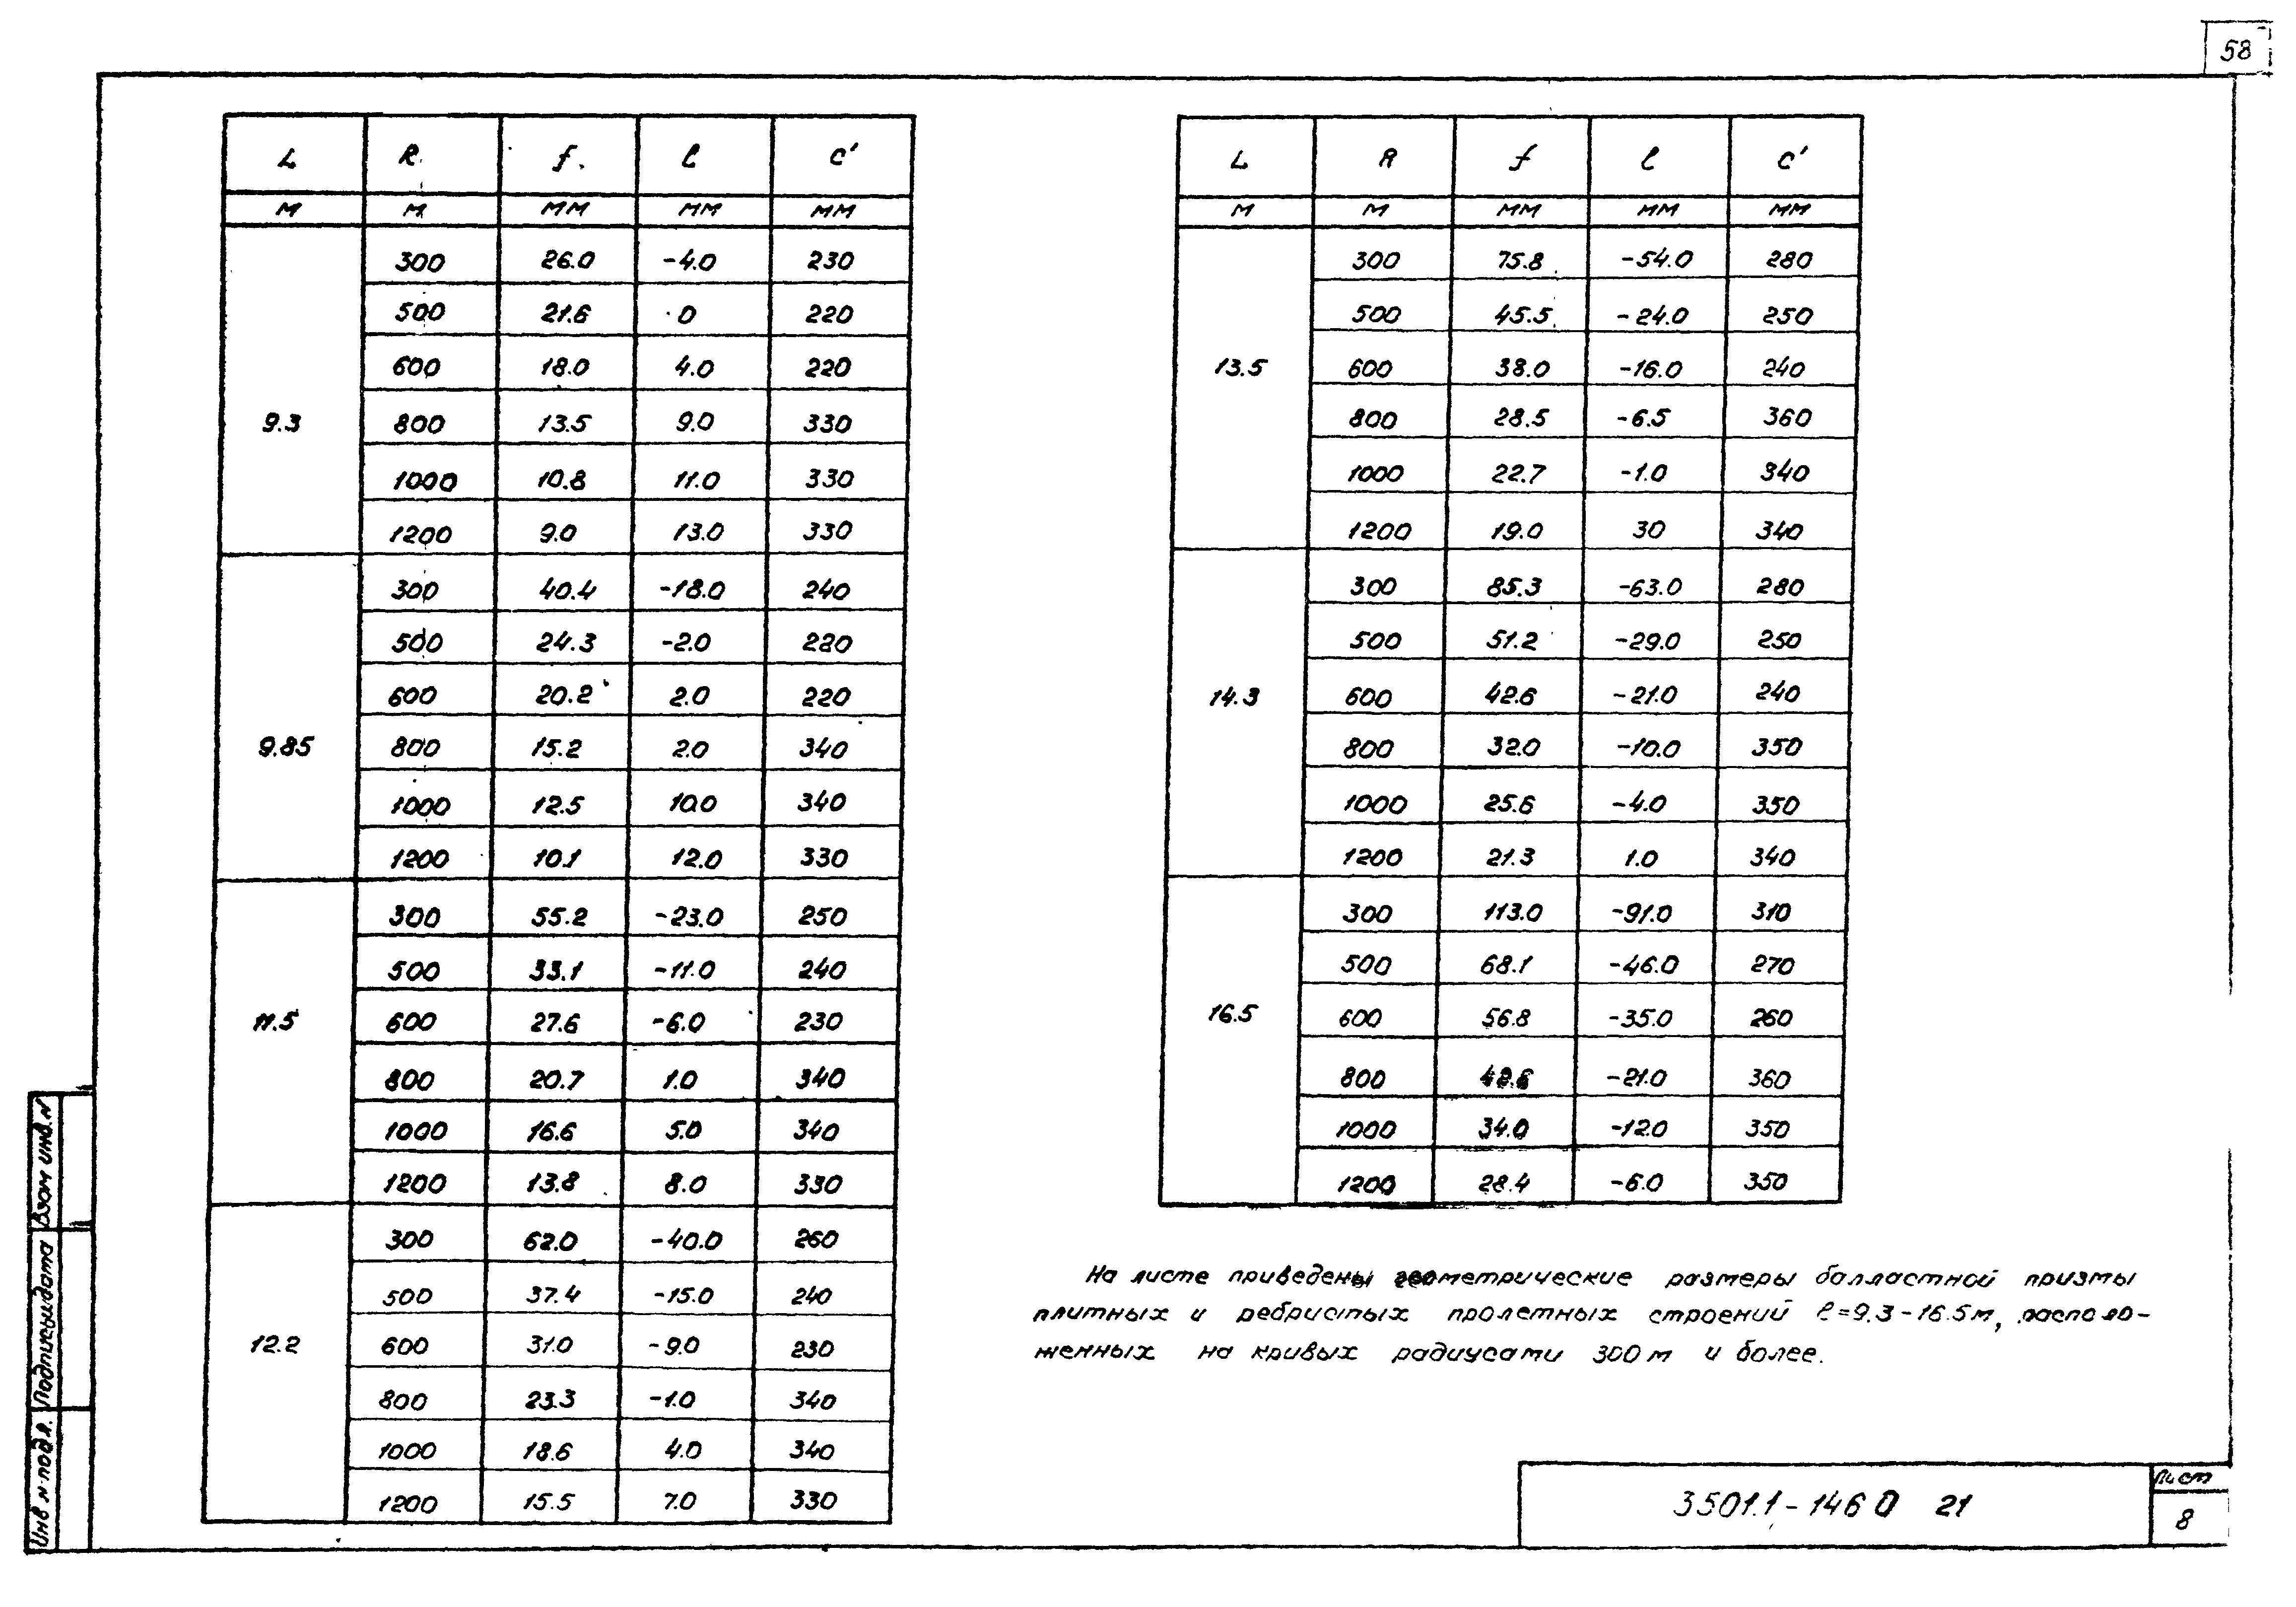 58
L R f l c'
м м мм мм мм
9.3
300 26.0 -4.0 230
500 21.6 0 220
600 18.0 4.0 220
800 13.5 9.0 330
1000 10.8 11.0 330
1200 9.0 13.0 330
9.85
300 40.4 -18.0 240
500 24.3 -2.0 220
600 20.2 2.0 220
800 15.2 2.0 340
1000 12.5 10.0 340
1200 10.1 12.0 330
11.5
300 55.2 -23.0 250
500 33.1 -11.0 240
600 27.6 -6.0 230
800 20.7 1.0 340
1000 16.6 5.0 340
1200 13.8 8.0 330
12.2
300 62.0 -40.0 260
500 37.4 -15.0 240
600 31.0 -9.0 230
800 23.3 -1.0 340
1000 18.6 4.0 340
1200 15.5 7.0 330
L R f l c'
м м мм мм мм
13.5
300 75.8 -54.0 280
500 45.5 -24.0 250
600 38.0 -16.0 240
800 28.5 -6.5 360
1000 22.7 -1.0 340
1200 19.0 30 340
14.3
300 85.3 -63.0 280
500 51.2 -29.0 250
600 42.6 -21.0 240
800 32.0 -10.0 350
1000 25.6 -4.0 350
1200 21.3 1.0 340
16.5
300 113.0 -91.0 310
500 68.1 -46.0 270
600 56.8 -35.0 260
800 42.6 -21.0 360
1000 34.0 -12.0 350
1200 28.4 -6.0 350
На листе приведены геометрические размеры балластной призмы
плитных и ребристых пролетных строений l=9.3-16.5м, располо-
женных на кривых радиусами 300м и более.
3501.1-146 0 21
Лист
8
Инв н подл. Подпись и дата Взам инв. N